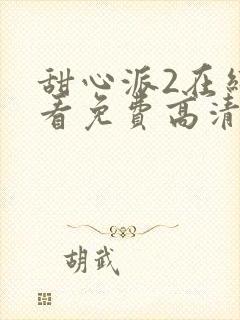 甜心派2在
看免费高清
胡武